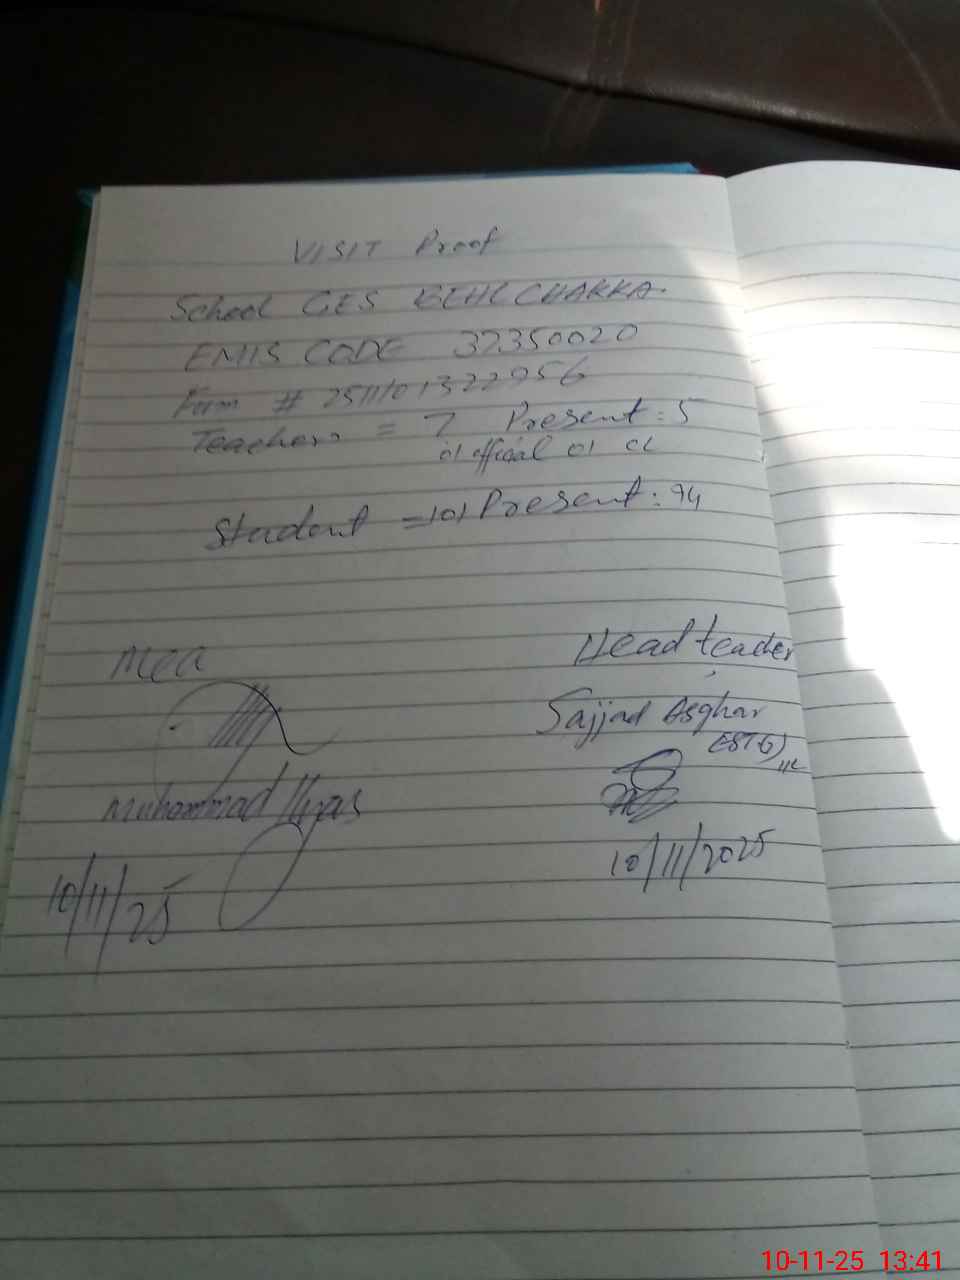 VISIT Proof
School GES BEHL CHAKKA.
EMIS CODE 32350020
Form # 2511101322956
Teachers = 7 Present: 5
01 official 01 CL
Student = 101 Present: 94
Mea
Head teader
Sajjad Asghar
(EST G)
Muhammad Ilyas
10/11/2025
10/11/25
10-11-25 13:41